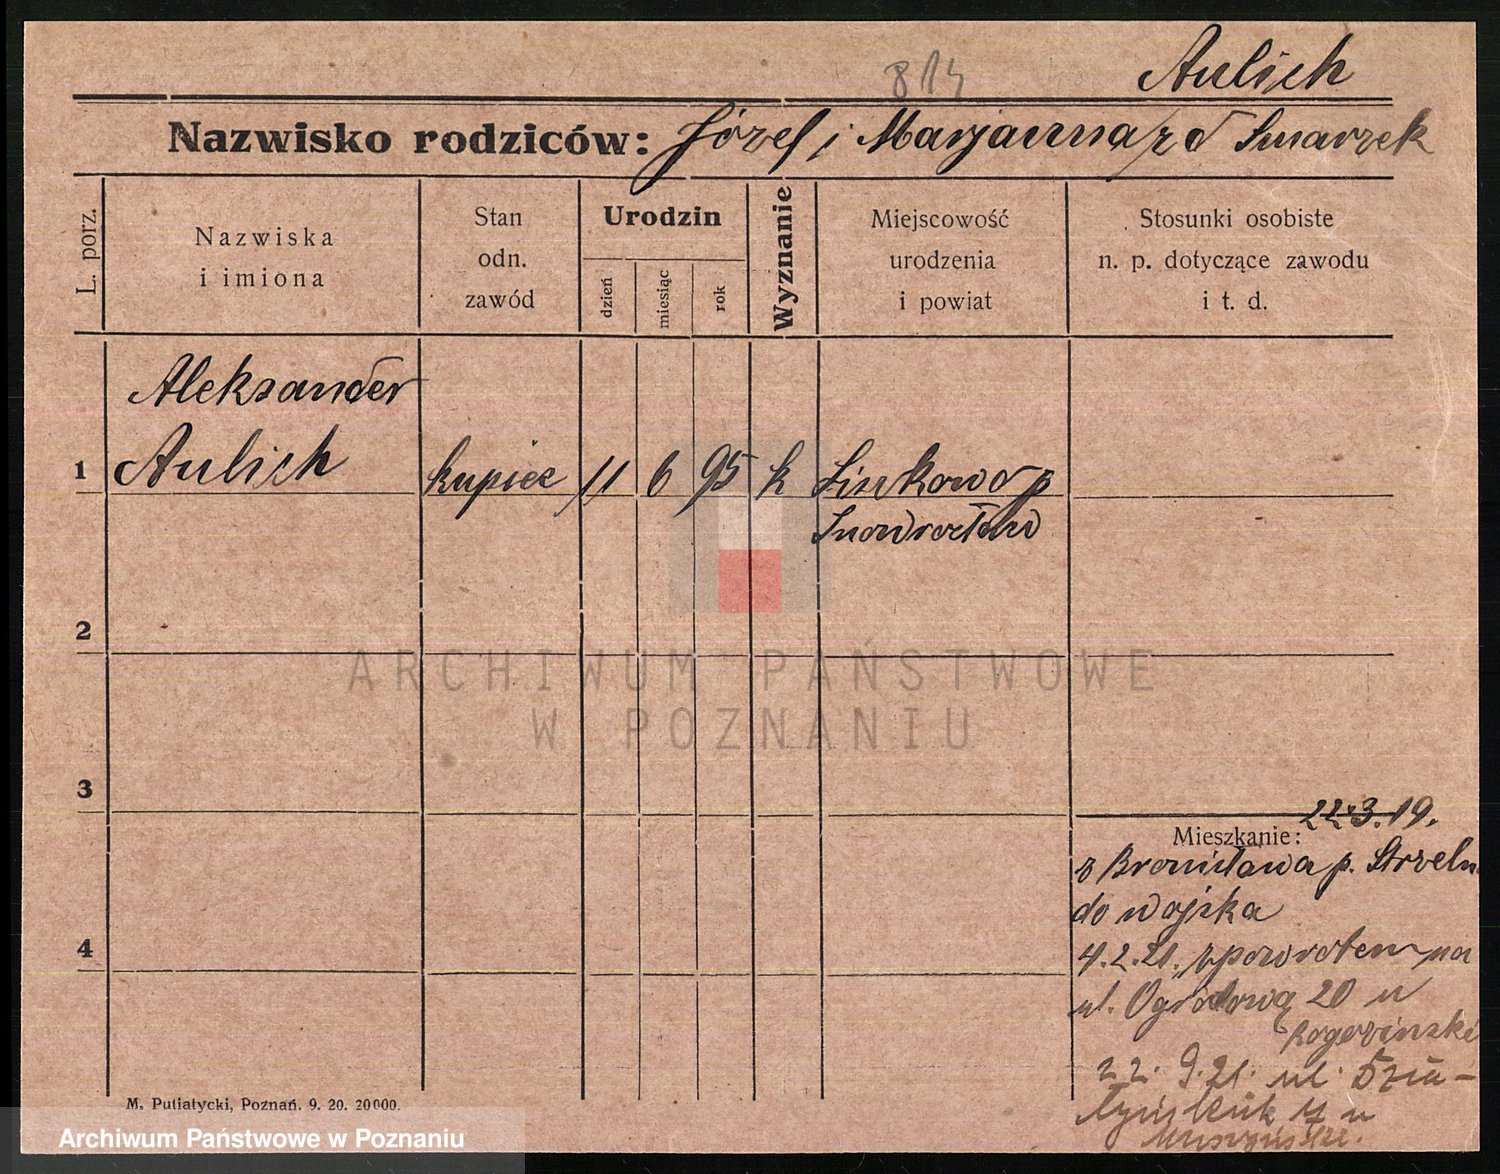 814 Aulich
Nazwisko rodziców: Józef i Marjanna z d Smarzek
L. porz.
Nazwiska
i imiona
Stan
odn.
zawód
Urodzin
dzień
miesiąc
rok
Wyznanie
Miejscowość
urodzenia
i powiat
Stosunki osobiste
n. p. dotyczące zawodu
i t. d.
Aleksander
1 Aulich kupiec 11 6 95 k Liszkowo p
Inowrocław
2
3
4
22.3.19.
Mieszkanie:
z Bronisława p. Strzeln
do wojska
4.2.21. zpowrotem na
ul. Ogrodową 20 u
Rogozinski
22. 9.21. ul. Dzia-
łyńskich u
M. Putiatycki, Poznań. 9. 20. 20000.
ARCHIWUM PAŃSTWOWE
W POZNANIU
Archiwum Państwowe w Poznaniu